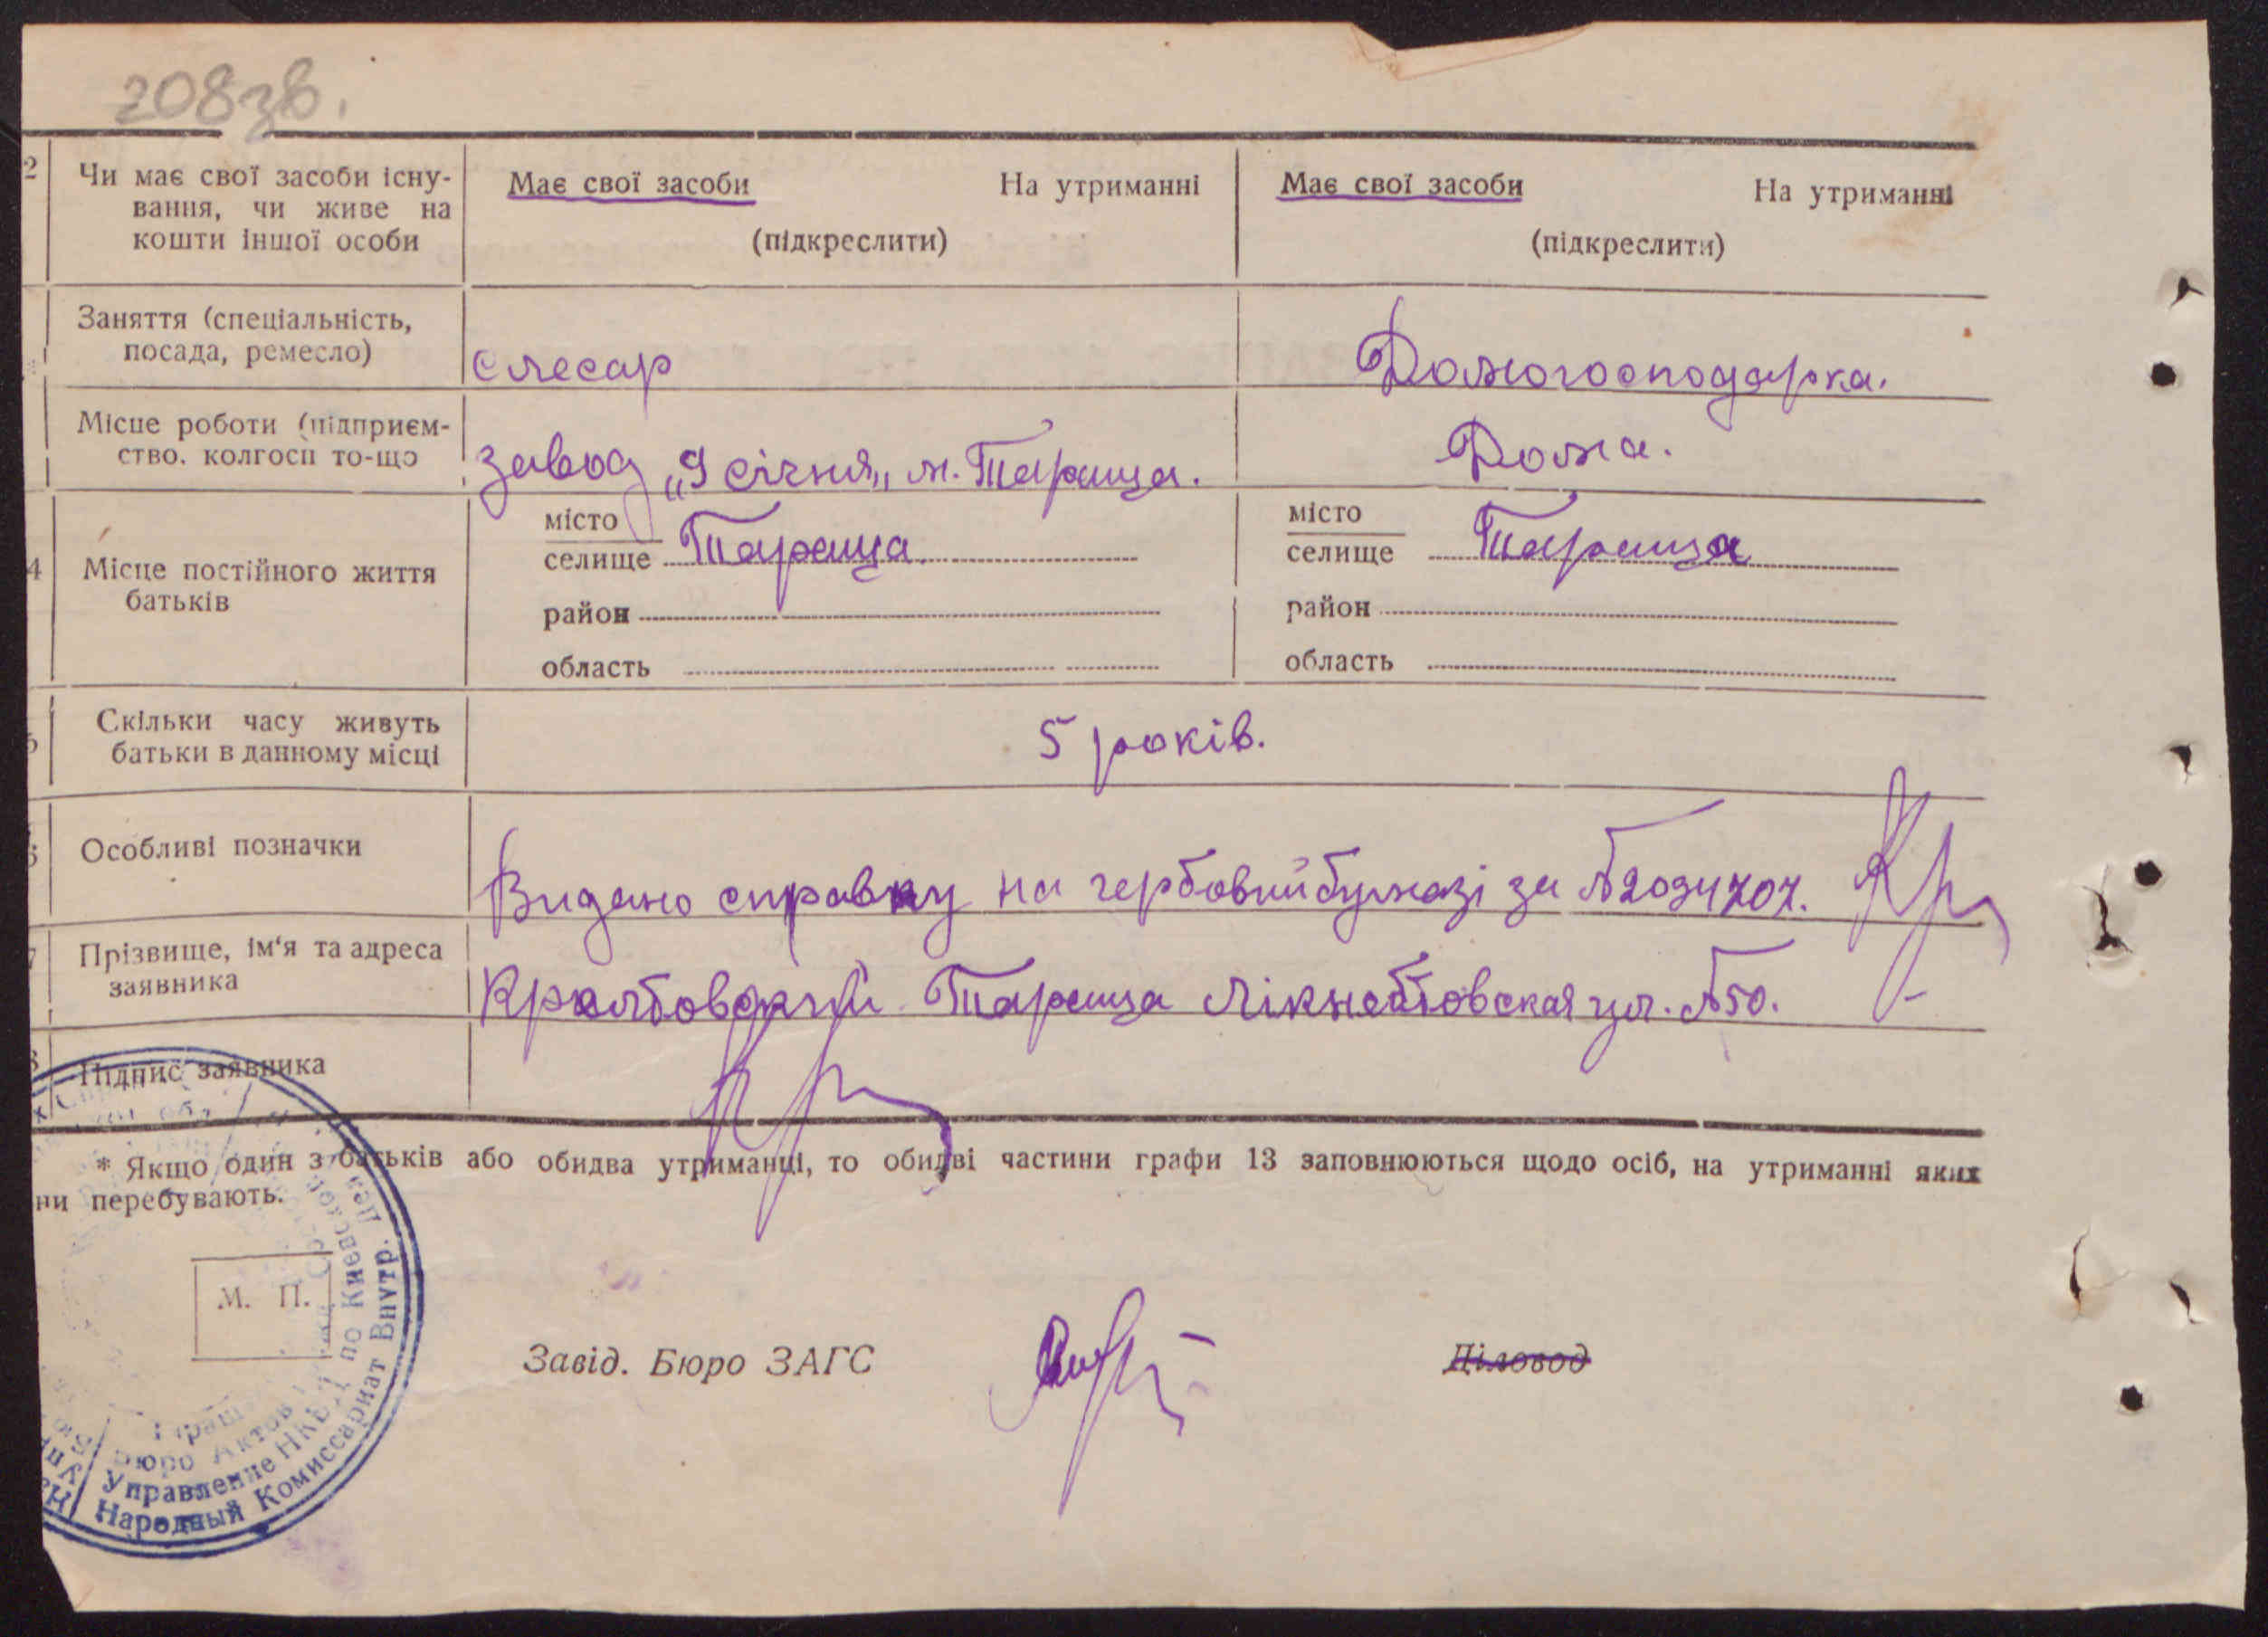 208зв.
2 Чи має свої засоби існу- Має свої засоби На утриманні Має свої засоби На утриманні
вання, чи живе на
кошти іншої особи (підкреслити) (підкреслити)
Заняття (спеціальність,
посада, ремесло) слесар Домогосподарка.
Місце роботи (підприєм-
ство, колгосп то-що завод „9 січня„ м. Тараща. Дома.
місто місто
селище Тараща. селище Тараща
4 Місце постійного життя
батьків
район район
область область
5 Скільки часу живуть
батьки в данному місці 5 років.
6 Особливі позначки
Видано справку на гербовий бумазі за №2034707.
7 Прізвище, ім'я та адреса
заявника Тараща ул. №50.
8 Підпис заявника
* Якщо один з батьків або обидва утриманці, то обидві частини графи 13 заповнюються щодо осіб, на утриманні яких
ни перебувають.
М. П.
Завід. Бюро ЗАГС Діловод
Народный Комиссариат Внутр. Дел
Управление НКВД по Киевской
Бюро Актов